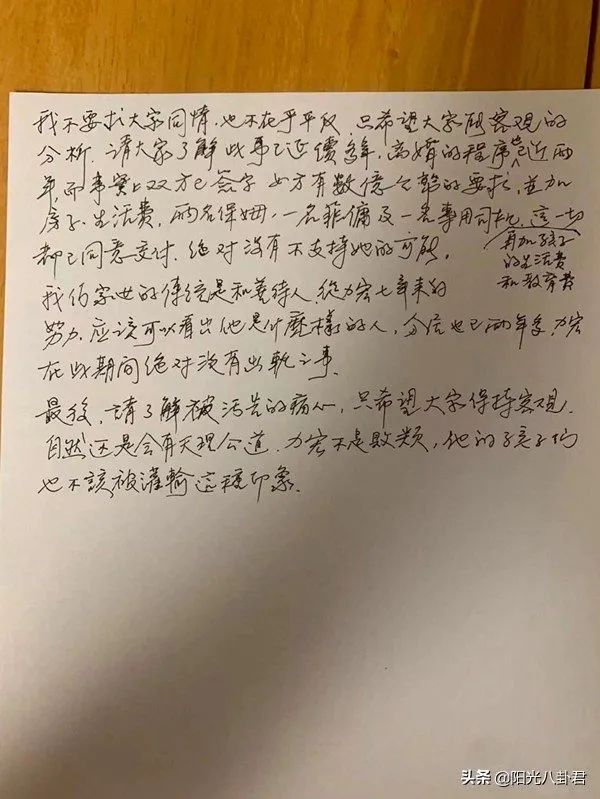 我不要求大家同情,也不在乎平反,只希望大家能客观的
分析,请大家了解此事已延續多年,离婚的程序已近两
年,而事實上双方已签字 女方有数億金额的要求,並加
房子、生活费,两名保姆,一名菲傭及一名專用司机,这一切
再加孩子
的生活费
和教育费
都已同意交付,绝对没有不支持她的可能。
我们家世的傳統是和善待人 從力宏七年来的
努力,应該可以看出他是什麽樣的人,分居也已两年多,力宏
在此期间绝对没有出軌之事。
最後,請了解被污告的痛心,只希望大家保持客观,
自然还是会有天理公道,力宏不是败類,他的孩子们
也不該被灌輸这種印象。
头条 @阳光八卦君